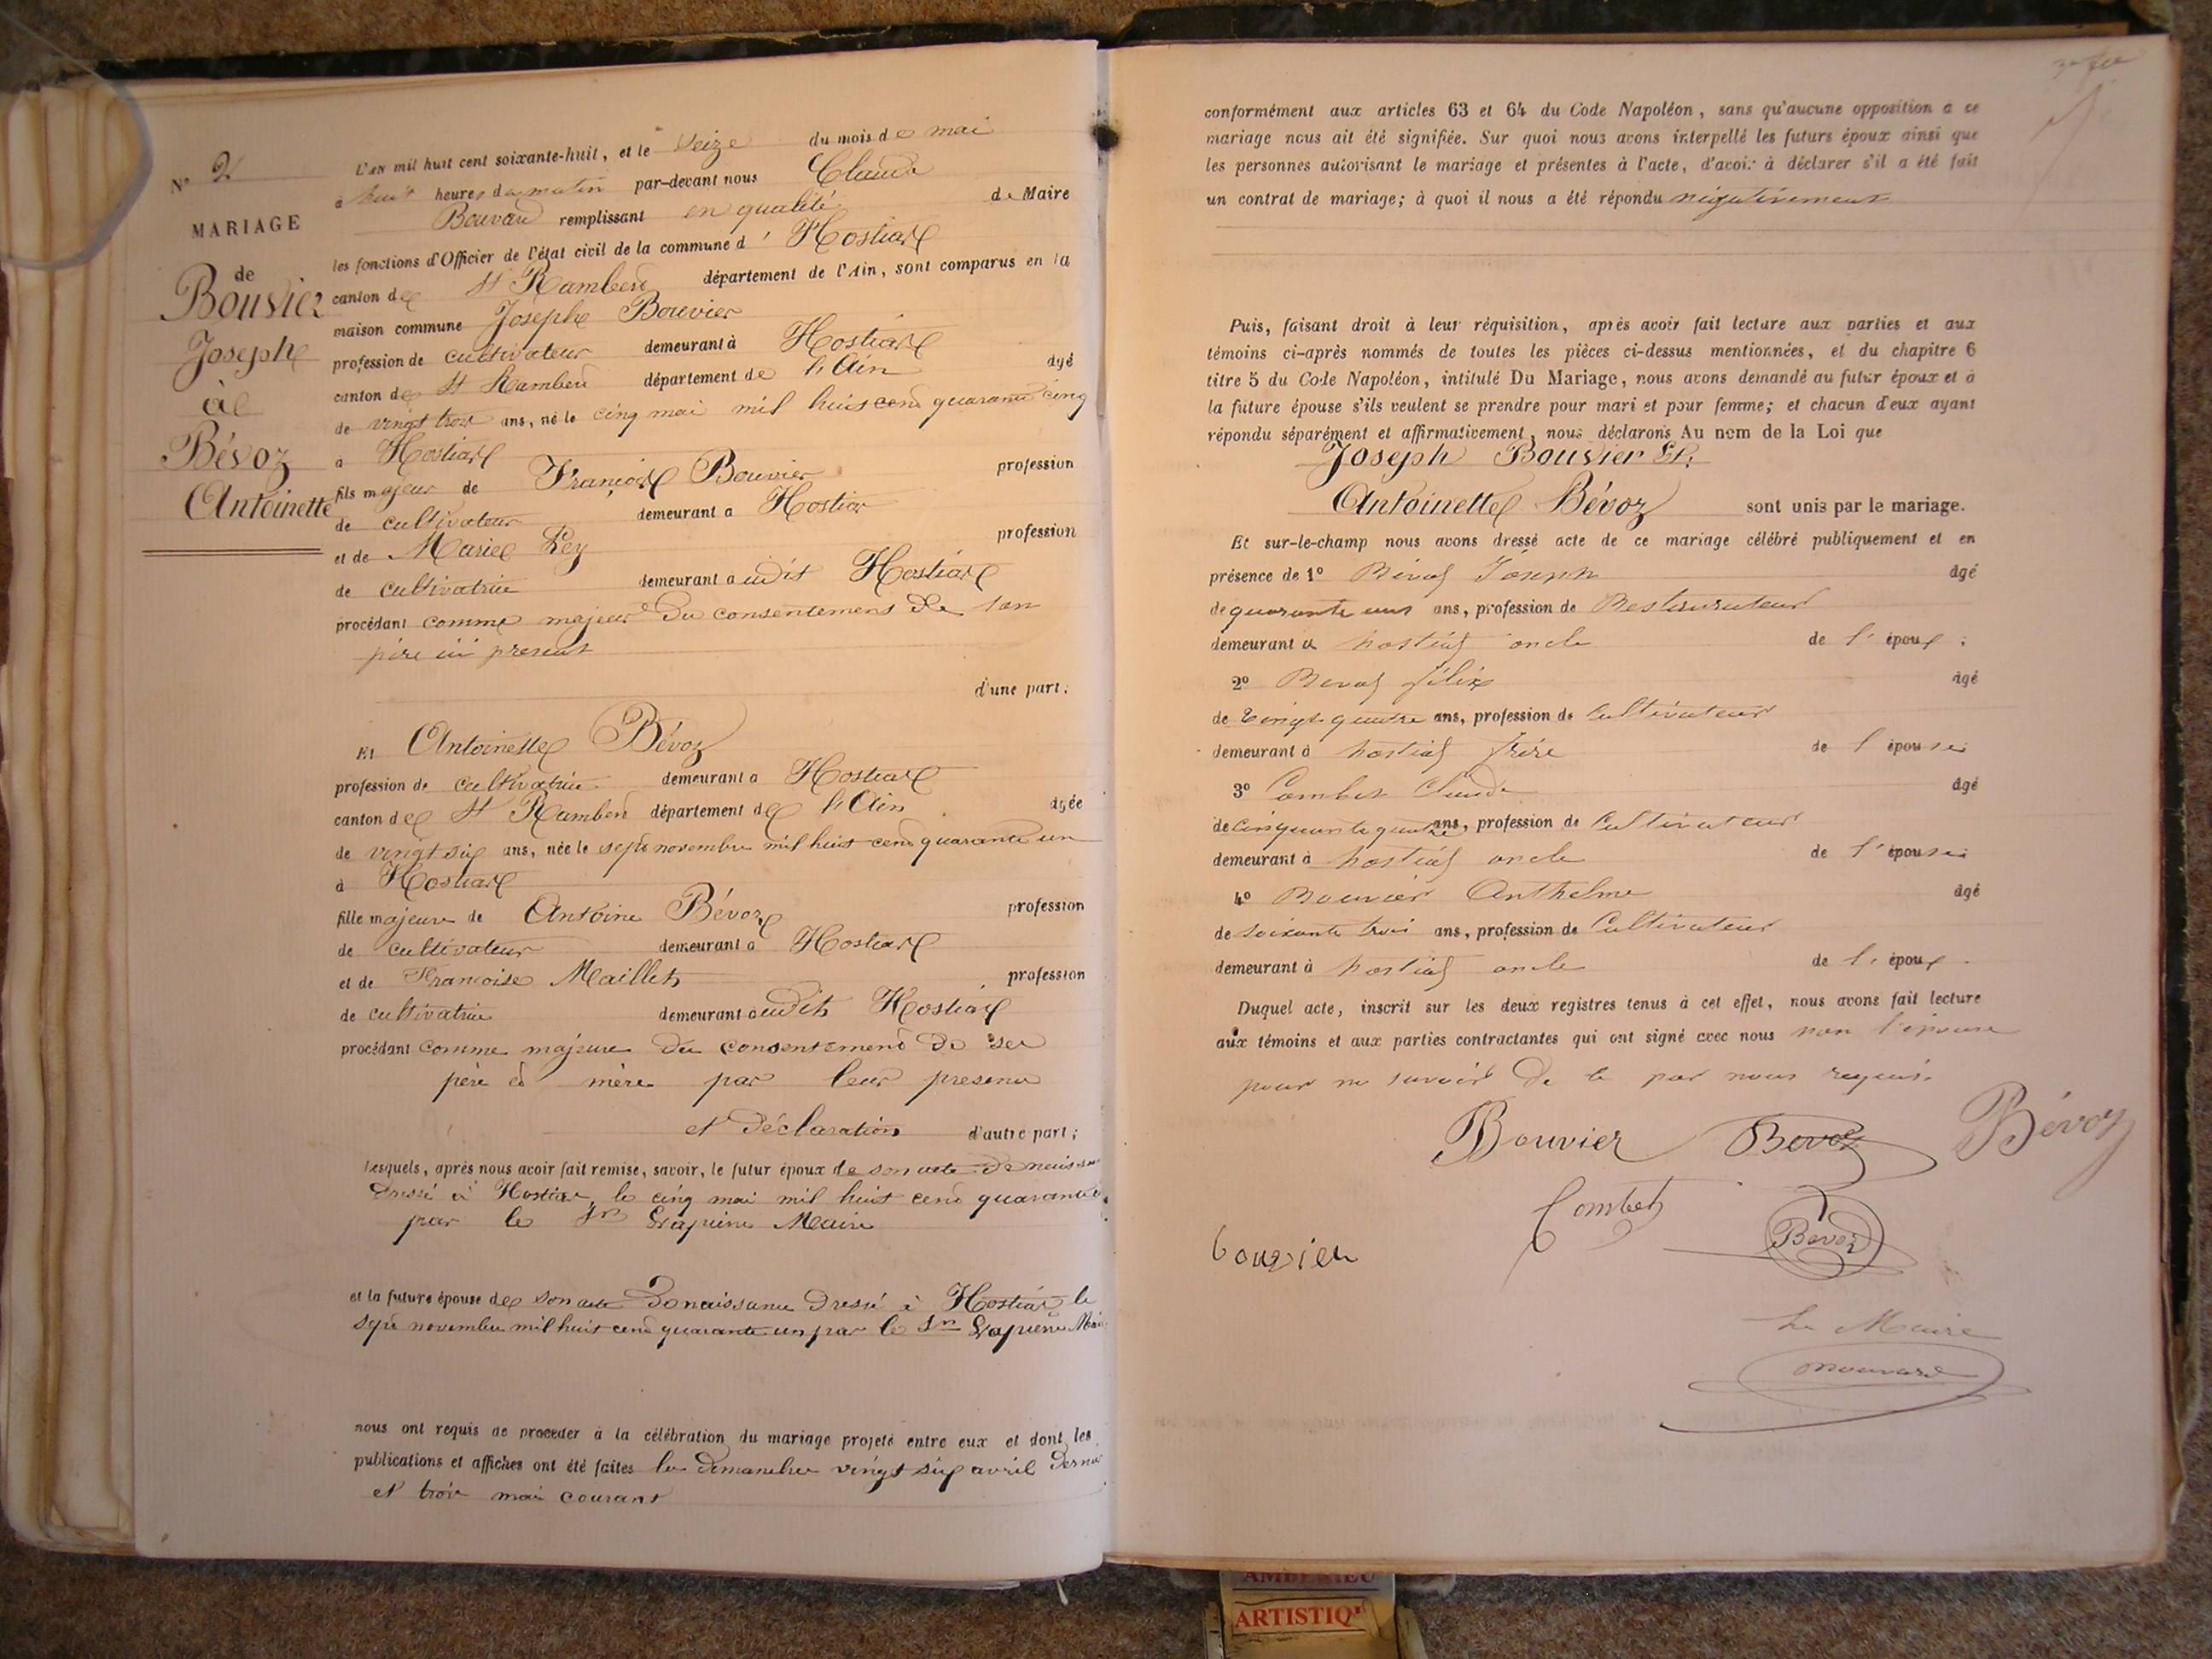 N° 2
MARIAGE
de
Bouvier
Joseph
à
Bévoz
Antoinette
L'an mil huit cent soixante-huit, et le seize du mois de mai
à huit heures du matin par-devant nous Claude
Bouvard remplissant en qualité de Maire
les fonctions d'Officier de l'état civil de la commune d' Hostiaz
canton de St Rambert département de l'Ain, sont comparus en la
maison commune Joseph Bouvier
profession de cultivateur demeurant à Hostiaz
canton de St Rambert département de l'Ain âgé
de vingt trois ans, né le cinq mai mil huit cent quarante cinq
à Hostiaz
fils majeur de François Bouvier profession
de cultivateur demeurant à Hostiaz
et de Marie Rey profession
de cultivatrice demeurant à udit Hostiaz
procédant comme majeur du consentement de son
père ici présent
d'une part;
Et Antoinette Bévoz
profession de cultivatrice demeurant à Hostiaz
canton de St Rambert département de l'Ain âgée
de vingt six ans, née le sept novembre mil huit cent quarante un
à Hostiaz
fille majeure de Antoine Bévoz profession
de cultivateur demeurant à Hostiaz
et de Françoise Maillet profession
de cultivatrice demeurant à udit Hostiaz
procédant comme majeure du consentement de ses
père et mère par leur présence
et déclaration d'autre part;
Lesquels, après nous avoir fait remise, savoir, le futur époux de son acte de naissance
dressé à Hostiaz le cinq mai mil huit cent quarante
par le Sr Maire
et la future épouse de son acte de naissance dressé à Hostiaz le
sept novembre mil huit cent quarante un par le Sr Maire
nous ont requis de procéder à la célébration du mariage projeté entre eux et dont les
publications et affiches ont été faites les dimanches vingt six avril dernier
et trois mai courant
conformément aux articles 63 et 64 du Code Napoléon, sans qu'aucune opposition à ce
mariage nous ait été signifiée. Sur quoi nous avons interpellé les futurs époux ainsi que
les personnes autorisant le mariage et présentes à l'acte, d'avoir à déclarer s'il a été fait
un contrat de mariage; à quoi il nous a été répondu négativement
Puis, faisant droit à leur réquisition, après avoir fait lecture aux parties et aux
témoins ci-après nommés de toutes les pièces ci-dessus mentionnées, et du chapitre 6
titre 5 du Code Napoléon, intitulé Du Mariage, nous avons demandé au futur époux et à
la future épouse s'ils veulent se prendre pour mari et pour femme; et chacun d'eux ayant
répondu séparément et affirmativement, nous déclarons Au nom de la Loi que
Joseph Bouvier Et
Antoinette Bévoz sont unis par le mariage.
Et sur-le-champ nous avons dressé acte de ce mariage célébré publiquement et en
présence de 1° Bévoz Joseph âgé
de quarante ans, profession de Restaurateur
demeurant à hostiaz oncle de l'époux;
2° Bevoz félix âgé
de vingt quatre ans, profession de Cultivateur
demeurant à hostiaz frère de l'épouse;
3° Combet Claude âgé
de cinquante quatre ans, profession de Cultivateur
demeurant à hostiaz oncle de l'épouse;
4° Bouvier Anthelme âgé
de soixante trois ans, profession de Cultivateur
demeurant à hostiaz oncle de l'époux.
Duquel acte, inscrit sur les deux registres tenus à cet effet, nous avons fait lecture
aux témoins et aux parties contractantes qui ont signé avec nous non l'épouse
pour ne savoir de ce par nous requis.
Bouvier Bevoz Bévoz
Combet
bouvier Bevoz
Le Maire
Bouvard
AMBERIEU
ARTISTIQ